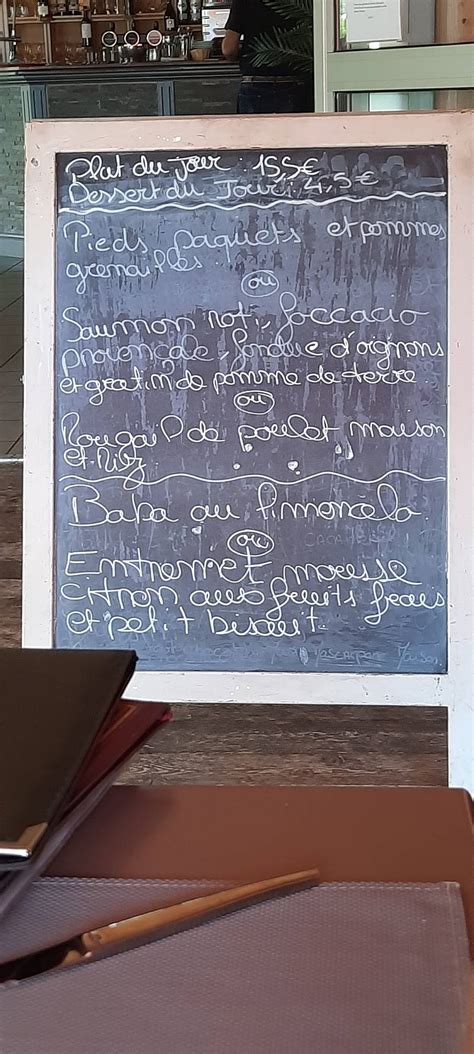 Plat du jour : 15,5€
Dessert du Jour : 4,5€
Pieds paquets et pommes
grenailles.
ou
Saumon roti, foccacio
provençale, fondue d'oignons
et gratin de pomme de terre
ou
Rougail de poulet maison
et Riz
Baba au limoncelo
ou
Entremet mousse
citron aux fruits frais
et petit biscuit.
Maison